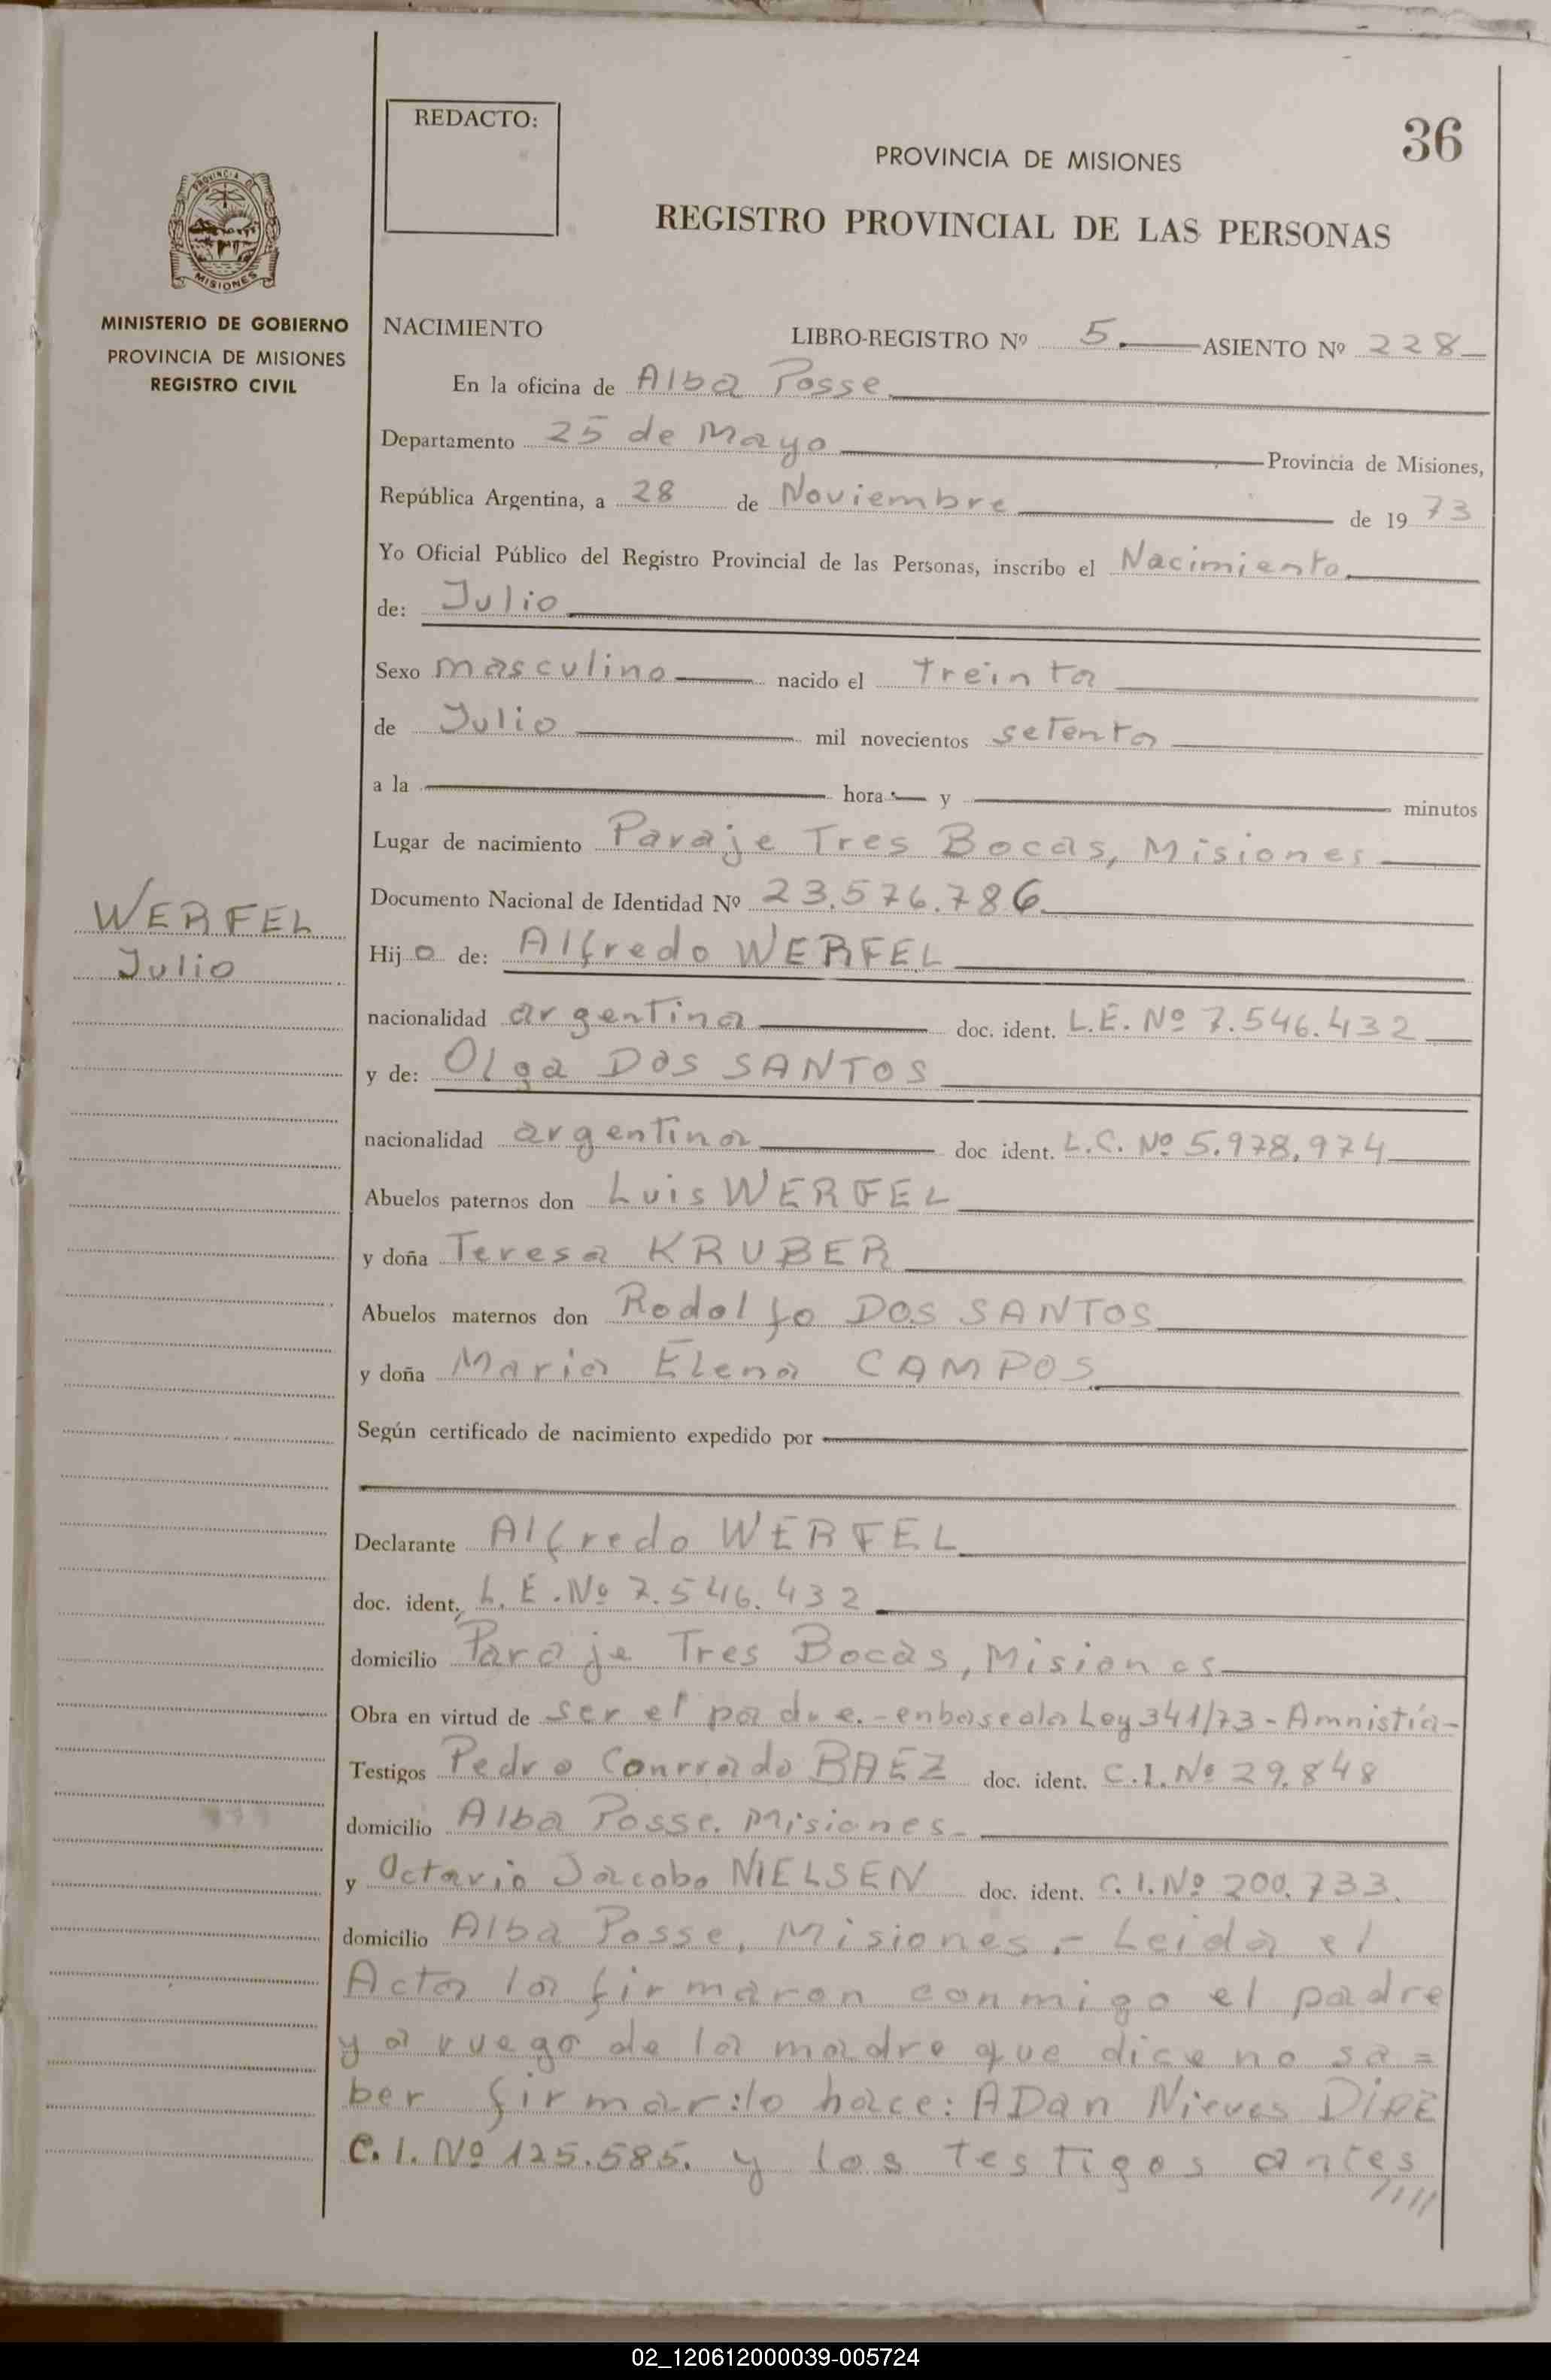 REDACTO:
36
PROVINCIA DE MISIONES
REGISTRO PROVINCIAL DE LAS PERSONAS
PROVINCIA DE
MISIONES
MINISTERIO DE GOBIERNO
PROVINCIA DE MISIONES
REGISTRO CIVIL
NACIMIENTO LIBRO-REGISTRO Nº 5. ASIENTO Nº 228
En la oficina de Alba Posse
Departamento 25 de Mayo Provincia de Misiones,
República Argentina, a 28 de Noviembre de 1973
Yo Oficial Público del Registro Provincial de las Personas, inscribo el Nacimiento
de: Julio
Sexo masculino nacido el treinta
de Julio mil novecientos setenta
a la hora y minutos
Lugar de nacimiento Paraje Tres Bocas, Misiones
Documento Nacional de Identidad Nº 23.576.786
WERFEL
Julio
Hijo de: Alfredo WERFEL
nacionalidad argentina doc. ident. L.E. Nº 7.546.432
y de: Olga DOS SANTOS
nacionalidad argentina doc ident. L.C. Nº 5.978.974
Abuelos paternos don Luis WERFEL
y doña Teresa KRUBER
Abuelos maternos don Rodolfo DOS SANTOS
y doña Maria Elena CAMPOS
Según certificado de nacimiento expedido por
Declarante Alfredo WERFEL
doc. ident. L.E. Nº 7.546.432
domicilio Paraje Tres Bocas, Misiones
Obra en virtud de ser el padre.- en base a la Ley 341/73 - Amnistía-
Testigos Pedro Conrrado BAEZ doc. ident. C.I. Nº 29.848
domicilio Alba Posse. Misiones-
y Octavio Jacobo NIELSEN doc. ident. C.I. Nº 200.733.
domicilio Alba Posse, Misiones.- Leida el
Acta la firmaron conmigo el padre
y a ruego de la madre que dice no sa=
ber firmar: lo hace: ADan Nieves
C.I. Nº 125.585. y los testigos antes
/////
02_120612000039-005724